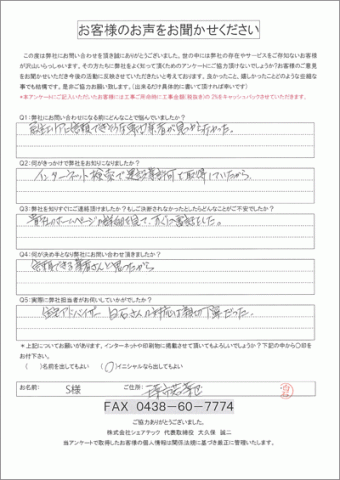 お客様のお声をお聞かせください
この度は弊社にお問い合わせを頂き誠にありがとうございました。世の中には弊社の存在やサービスをご存知ないお客様
が沢山いらっしゃいます。その方たちに弊社をよく知って頂くためのアンケートにご協力頂けないでしょうか?お客様のご意見
をお聞かせいただき今後の活動に反映させていただきたいと考えております。良かったこと、嬉しかったことどのような些細な
事でも結構です。是非ご協力お願い致します。(出来るだけ具体的に書いて頂ければ幸いです)
Q1:弊社にお問い合わせになる前にどんなことで悩んでいましたか?
Q2:何がきっかけで弊社をお知りになりましたか?
インターネット検索で
Q3:弊社を知りすぐにご連絡頂けましたか?もしご決断されなかったとしたらどんなことがご不安でしたか?
貴社のホームページの
Q4:何が決め手となり弊社にお問い合わせ頂きましたか?
信頼できる業者さんと思ったから
Q5:実際に弊社担当者がお伺いしていかがでしたか?
アドバイザー 白石さんの対応は親切丁寧だった。
*上記についてお願いがあります。インターネットや印刷物に掲載させて頂いてもよろしいでしょうか?下記の中から〇印を
お付け下さい。
( )名前を出してもよい (〇)イニシャルなら出してもよい
お名前: S様 ご住所:
FAX 0438-60-7774
ご協力ありがとうございました。
株式会社シェアテック 代表取締役 大久保 誠二
当アンケートで取得したお客様の個人情報は関係法規に基づき厳正に管理いたします。